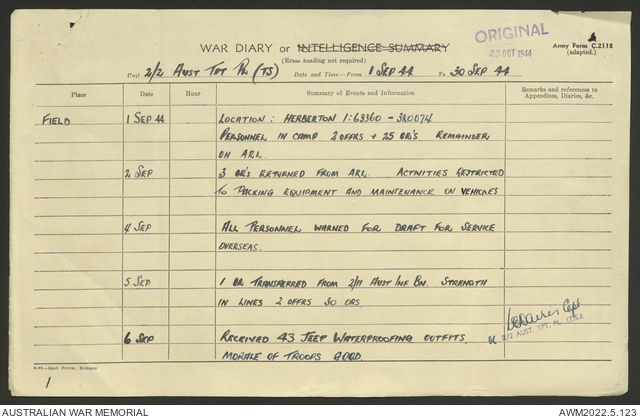 ORIGINAL
23 OCT 1944
Army Form C.2118
(adapted.)
WAR DIARY or INTELLIGENCE SUMMARY
(Erase heading not required)
Unit 2/2 AUST TPT PL (TS) Date and Time—From 1 SEP 44 To 30 SEP 44
Place Date Hour Summary of Events and Information Remarks and references to Appendices, Diaries, &c.
FIELD 1 SEP 44 LOCATION: HERBERTON 1:63360 - 320074
PERSONNEL IN CAMP 2 OFFRS + 25 OR'S REMAINDER
ON ARL.
2 SEP 3 OR'S RETURNED FROM ARL. ACTIVITIES RESTRICTED
TO PACKING EQUIPMENT AND MAINTENANCE ON VEHICLES
4 SEP ALL PERSONNEL WARNED FOR DRAFT FOR SERVICE
OVERSEAS.
5 SEP 1 OR TRANSFERRED FROM 2/11 AUST INF BN. STRENGTH
IN LINES 2 OFFRS 30 ORS.
Capt
2/2 AUST. TPT. PL.
6 SEP RECEIVED 43 JEEP WATERPROOFING OUTFITS.
MORALE OF TROOPS GOOD.
Govt. Printer, Brisbane.
1
AUSTRALIAN WAR MEMORIAL AWM2022.5.123